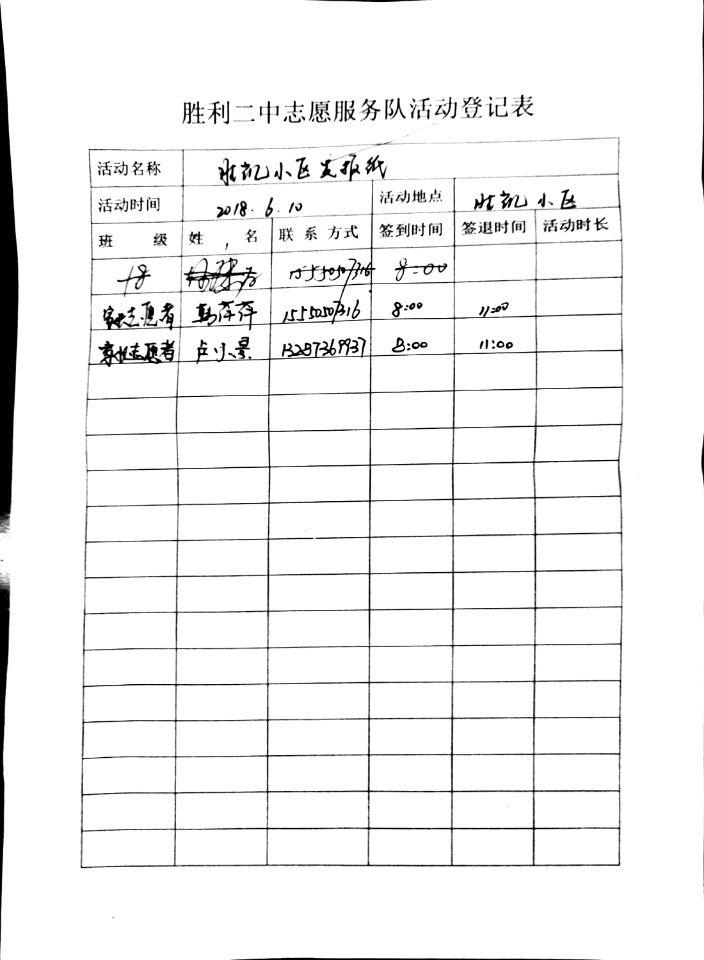 胜利二中志愿服务队活动登记表
活动名称 胜凯小区发报纸
活动时间 2018.6.10 活动地点 胜凯小区
班 级 姓 , 名 联 系 方式 签到时间 签退时间 活动时长
18 15550507316 8:00
家长志愿者 韩萍萍 15550507316 8:00 11:00
家长志愿者 卢小景 13287369937 8:00 11:00